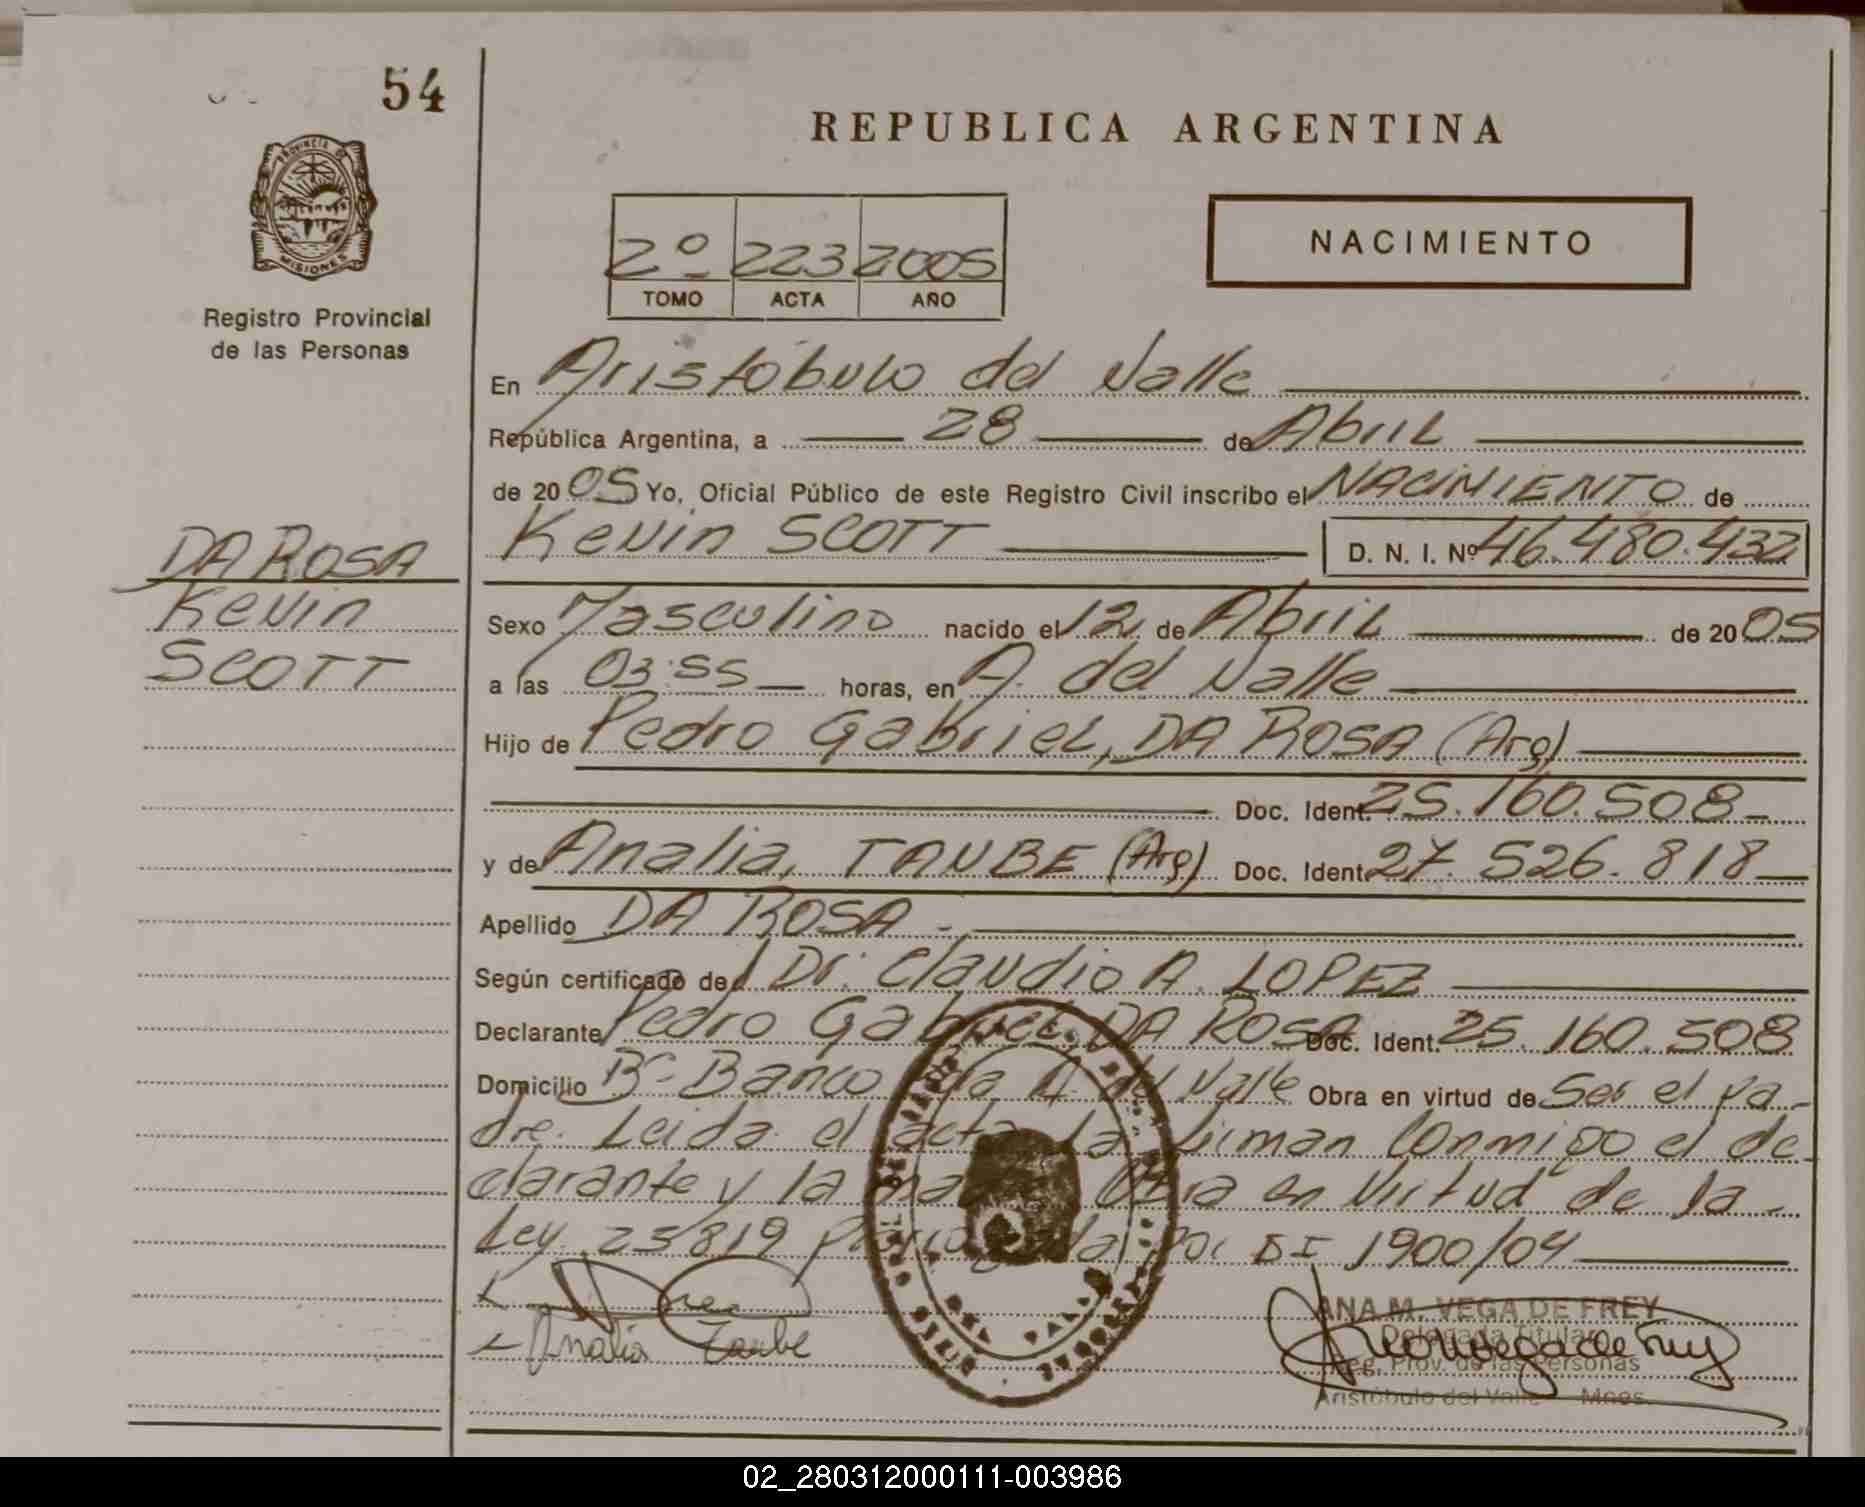 54
PROVINCIA DE
MISIONES
Registro Provincial
de las Personas
DA ROSA
Kevin
SCOTT
REPUBLICA ARGENTINA
2º 223 2005
TOMO ACTA AÑO
NACIMIENTO
En Aristóbulo del Valle
República Argentina, a 28 de Abril
de 2005 Yo, Oficial Público de este Registro Civil inscribo el NACIMIENTO de
Kevin SCOTT D. N. I. Nº 46.480.432
Sexo Masculino nacido el 12 de Abril de 2005
a las 03:55 horas, en A. del Valle
Hijo de Pedro Gabriel, DA ROSA (Arg)
Doc. Ident. 25.160.508
y de Analia, TAUBE (Arg) Doc. Ident. 27.526.818
Apellido DA ROSA
Según certificado del Dr. Claudio A. LOPEZ
Declarante Pedro Gabriel DA ROSA Doc. Ident. 25.160.508
Domicilio Bº Banco A. del Valle Obra en virtud de Ser el pa-
dre. Leida el acta la firman conmigo el de-
clarante y la Obra en virtud de la
Ley 25/819 por DI 1900/04
Analia Taube
ANA M. VEGA DE FREY
Delegada Titular
Reg. Prov. de las Personas
Aristóbulo del Valle - Mnes.
02_280312000111-003986